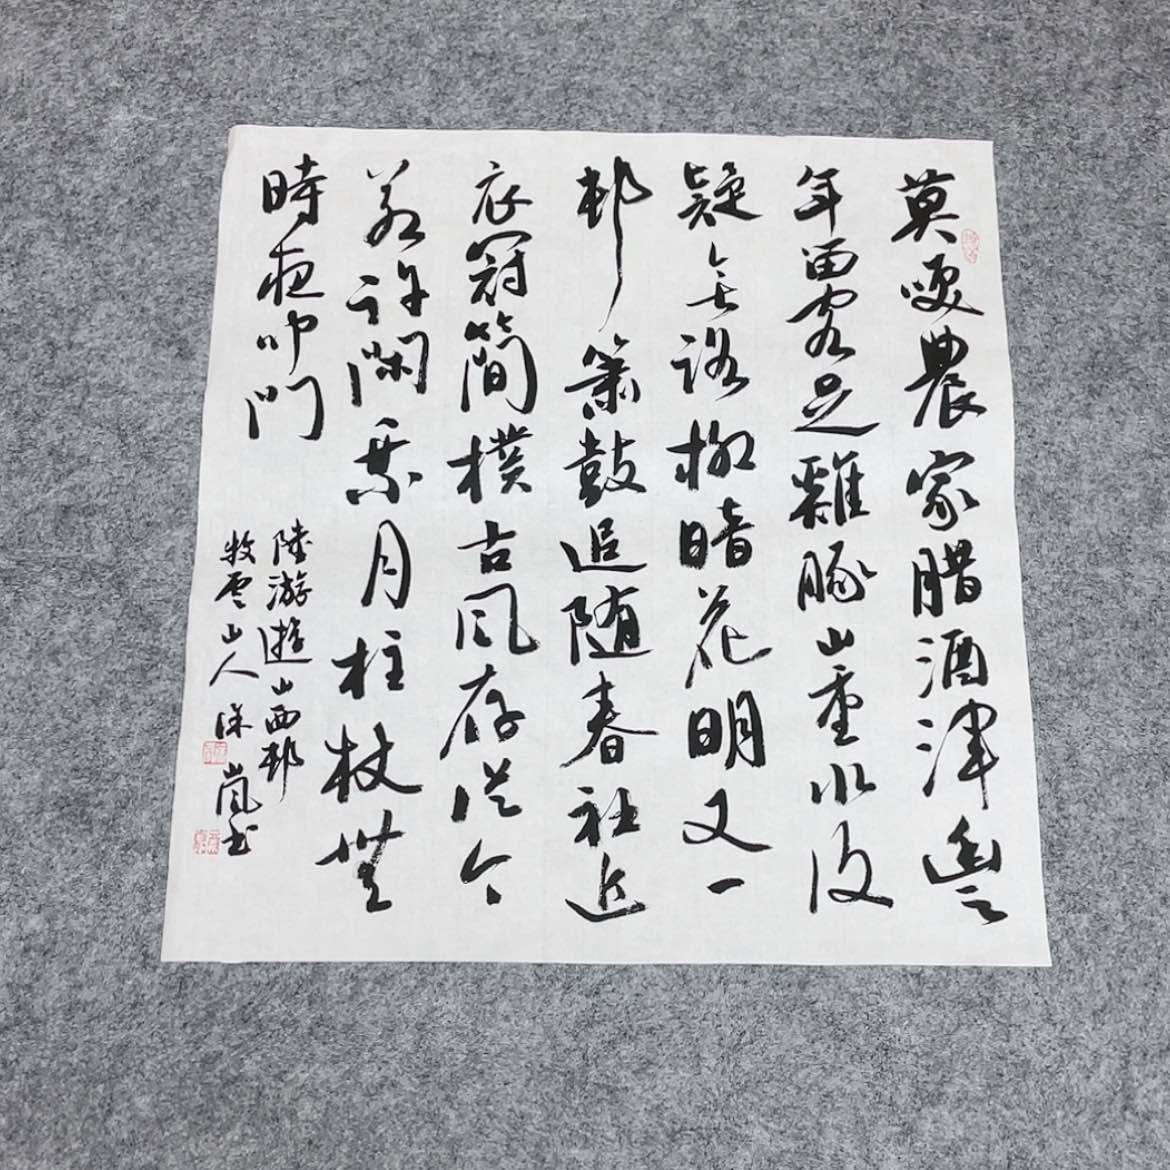 莫咲農家腊酒渾豐
年留客足雞豚山重水復
疑無路柳暗花明又一
邨簫鼓追随春社近
衣冠簡樸古風存從今
若許閑乘月柱杖無
時夜叩門
陸游遊山西邨
牧雲山人深嵐书